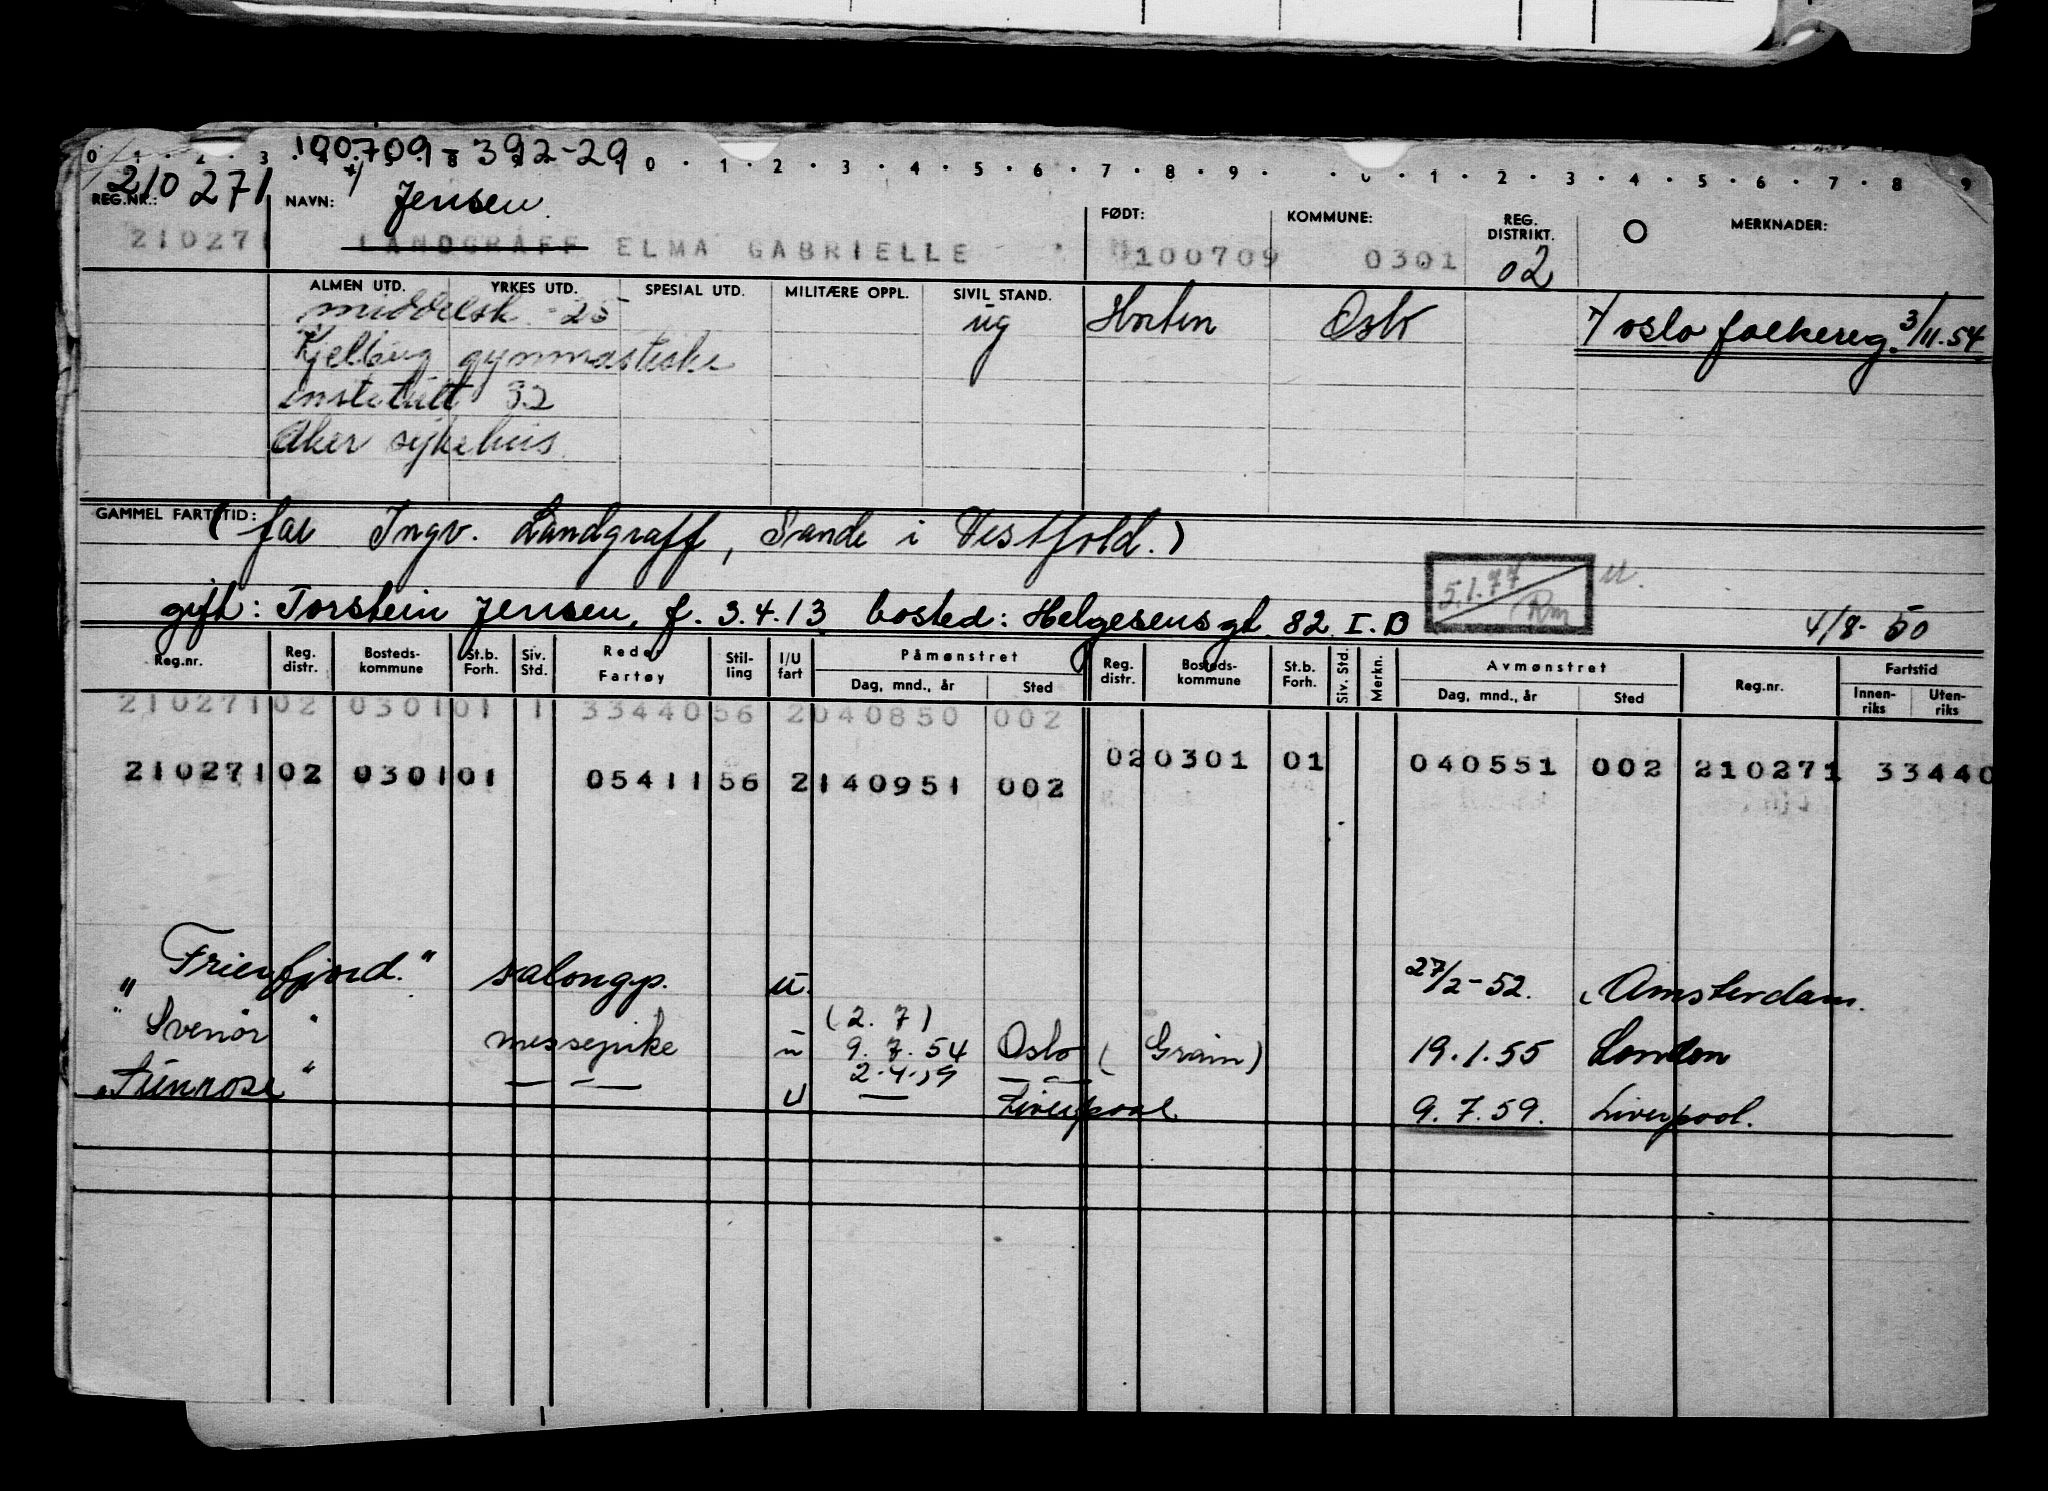 0 1 2 3 100709-392-29 0 1 2 3 4 5 6 7 8 9 0 1 2 3 4 5 6 7 8 9
210271
REG.NR.: NAVN: +/ Jensen. FØDT: KOMMUNE: REG. DISTRIKT. MERKNADER:
210271 LANDGRAFF ELMA GABRIELLE 100709 0301 02
ALMEN UTD. YRKES UTD. SPESIAL UTD. MILITÆRE OPPL. SIVIL STAND.
middelsk. 25 ug Horten Oslo +/ oslo folkereg. 3/11.54
gymnastiske
institutt 32
Aker sykehus.
GAMMEL FARTSTID: (far Ingv. Landgraff, Sande i Vestfold.)
5.1.77 Rm u.
gift: Torstein Jensen, f. 3.4.13 bosted: Helgesens gt. 82 I. B 4/8-50
Reg.nr. Reg. distr. Bosteds-kommune St.b. Forh. Siv. Std. Rede Fartøy Stil-ling I/U fart Påmønstret Reg. distr. Bosteds-kommune St.b. Forh. Siv. Std. Merkn. Avmønstret Reg.nr. Fartstid
Dag, mnd., år Sted Dag, mnd., år Sted Innen-riks Uten-riks
210271 02 0301 01 1 33440 56 2 040850 002
02 0301 01 040551 002 210271 33440
210271 02 0301 01 05411 56 2 140951 002
"Frierfjord." salongp. u. 27/2-52. Amsterdam.
(2.7)
"Svenør" messepike u 9.7.54 Oslo (Grain) 19.1.55 London
2.4.59
" — — U — Liverpool 9.7.59. Liverpool.